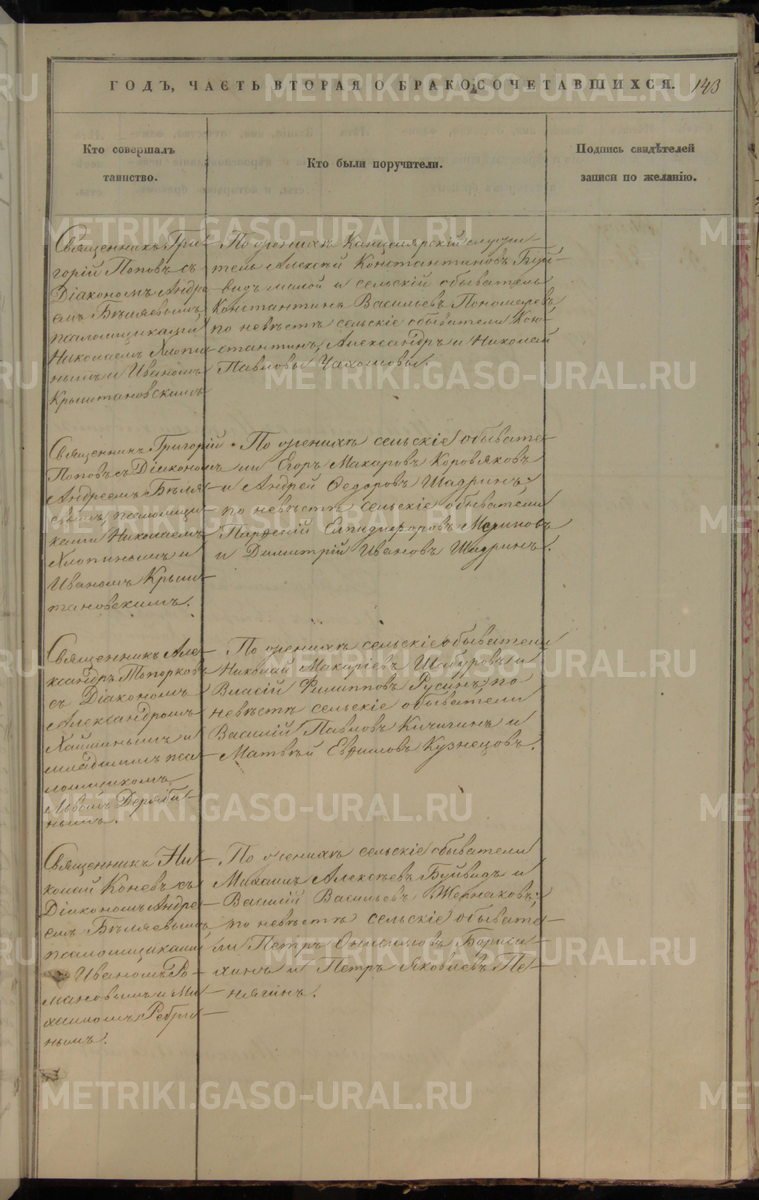 ГОДЪ, ЧАСТЬ ВТОРАЯ О БРАКОСОЧЕТАВШИХСЯ. 143
Кто совершалъ
таинство.
Кто были поручители.
Подпись свидѣтелей
записи по желанію.
Священникъ Гри-
горій Поповъ съ
Діакономъ Андре-
емъ Бѣляевымъ,
псаломщиками
Николаемъ Хлопи-
нымъ и Иваномъ
Крыштановскимъ
По женихѣ Канцелярскій служи-
тель Алексѣй Константиновъ Буй-
видъ и сельскій обыватель
Константинъ Васильевъ Пономаревъ
по невѣстѣ сельскіе обыватели Кон-
стантинъ, Александръ и Николай
Павловы
Священникъ Григорій
Поповъ съ Діакономъ
Андреемъ Бѣля-
евымъ, псаломщи-
ками Николаемъ
Хлопинымъ и
Иваномъ Крыш-
тановскимъ.
По женихѣ сельскіе обывате-
ли Егоръ Макаровъ Коровяковъ
и Андрей Федоровъ Шадринъ;
по невѣстѣ сельскіе обыватели
Парфеній Елпидифоровъ
и Димитрій Ивановъ Шадринъ.
Священникъ Але-
ксандръ Топорковъ
съ Діакономъ
Александромъ
и
младшимъ пса-
ломщикомъ
Львомъ Деряби-
нымъ.
По женихѣ сельскіе обыватели
Николай Макаріевъ и
Власій Филипповъ Русинъ; по
невѣстѣ сельскіе обыватели
Василій Павловъ Кичигинъ и
Матвѣй Евфимовъ Кузнецовъ.
Священникъ Ни-
колай Коневъ съ
Діакономъ Андре-
емъ Бѣляевымъ
псаломщиками
Иваномъ Ро-
мановымъ и Ми-
хаиломъ Ребри-
нымъ.
По женихѣ сельскіе обыватели
Михаилъ Алексѣевъ Буйвидъ и
Василій Васильевъ Жернаковъ;
по невѣстѣ сельскіе обывате-
ли Петръ Онисимовъ Бориси-
хинъ и Петръ Яковлевъ Пе-
нягинъ.
METRIKI.GASO-URAL.RU